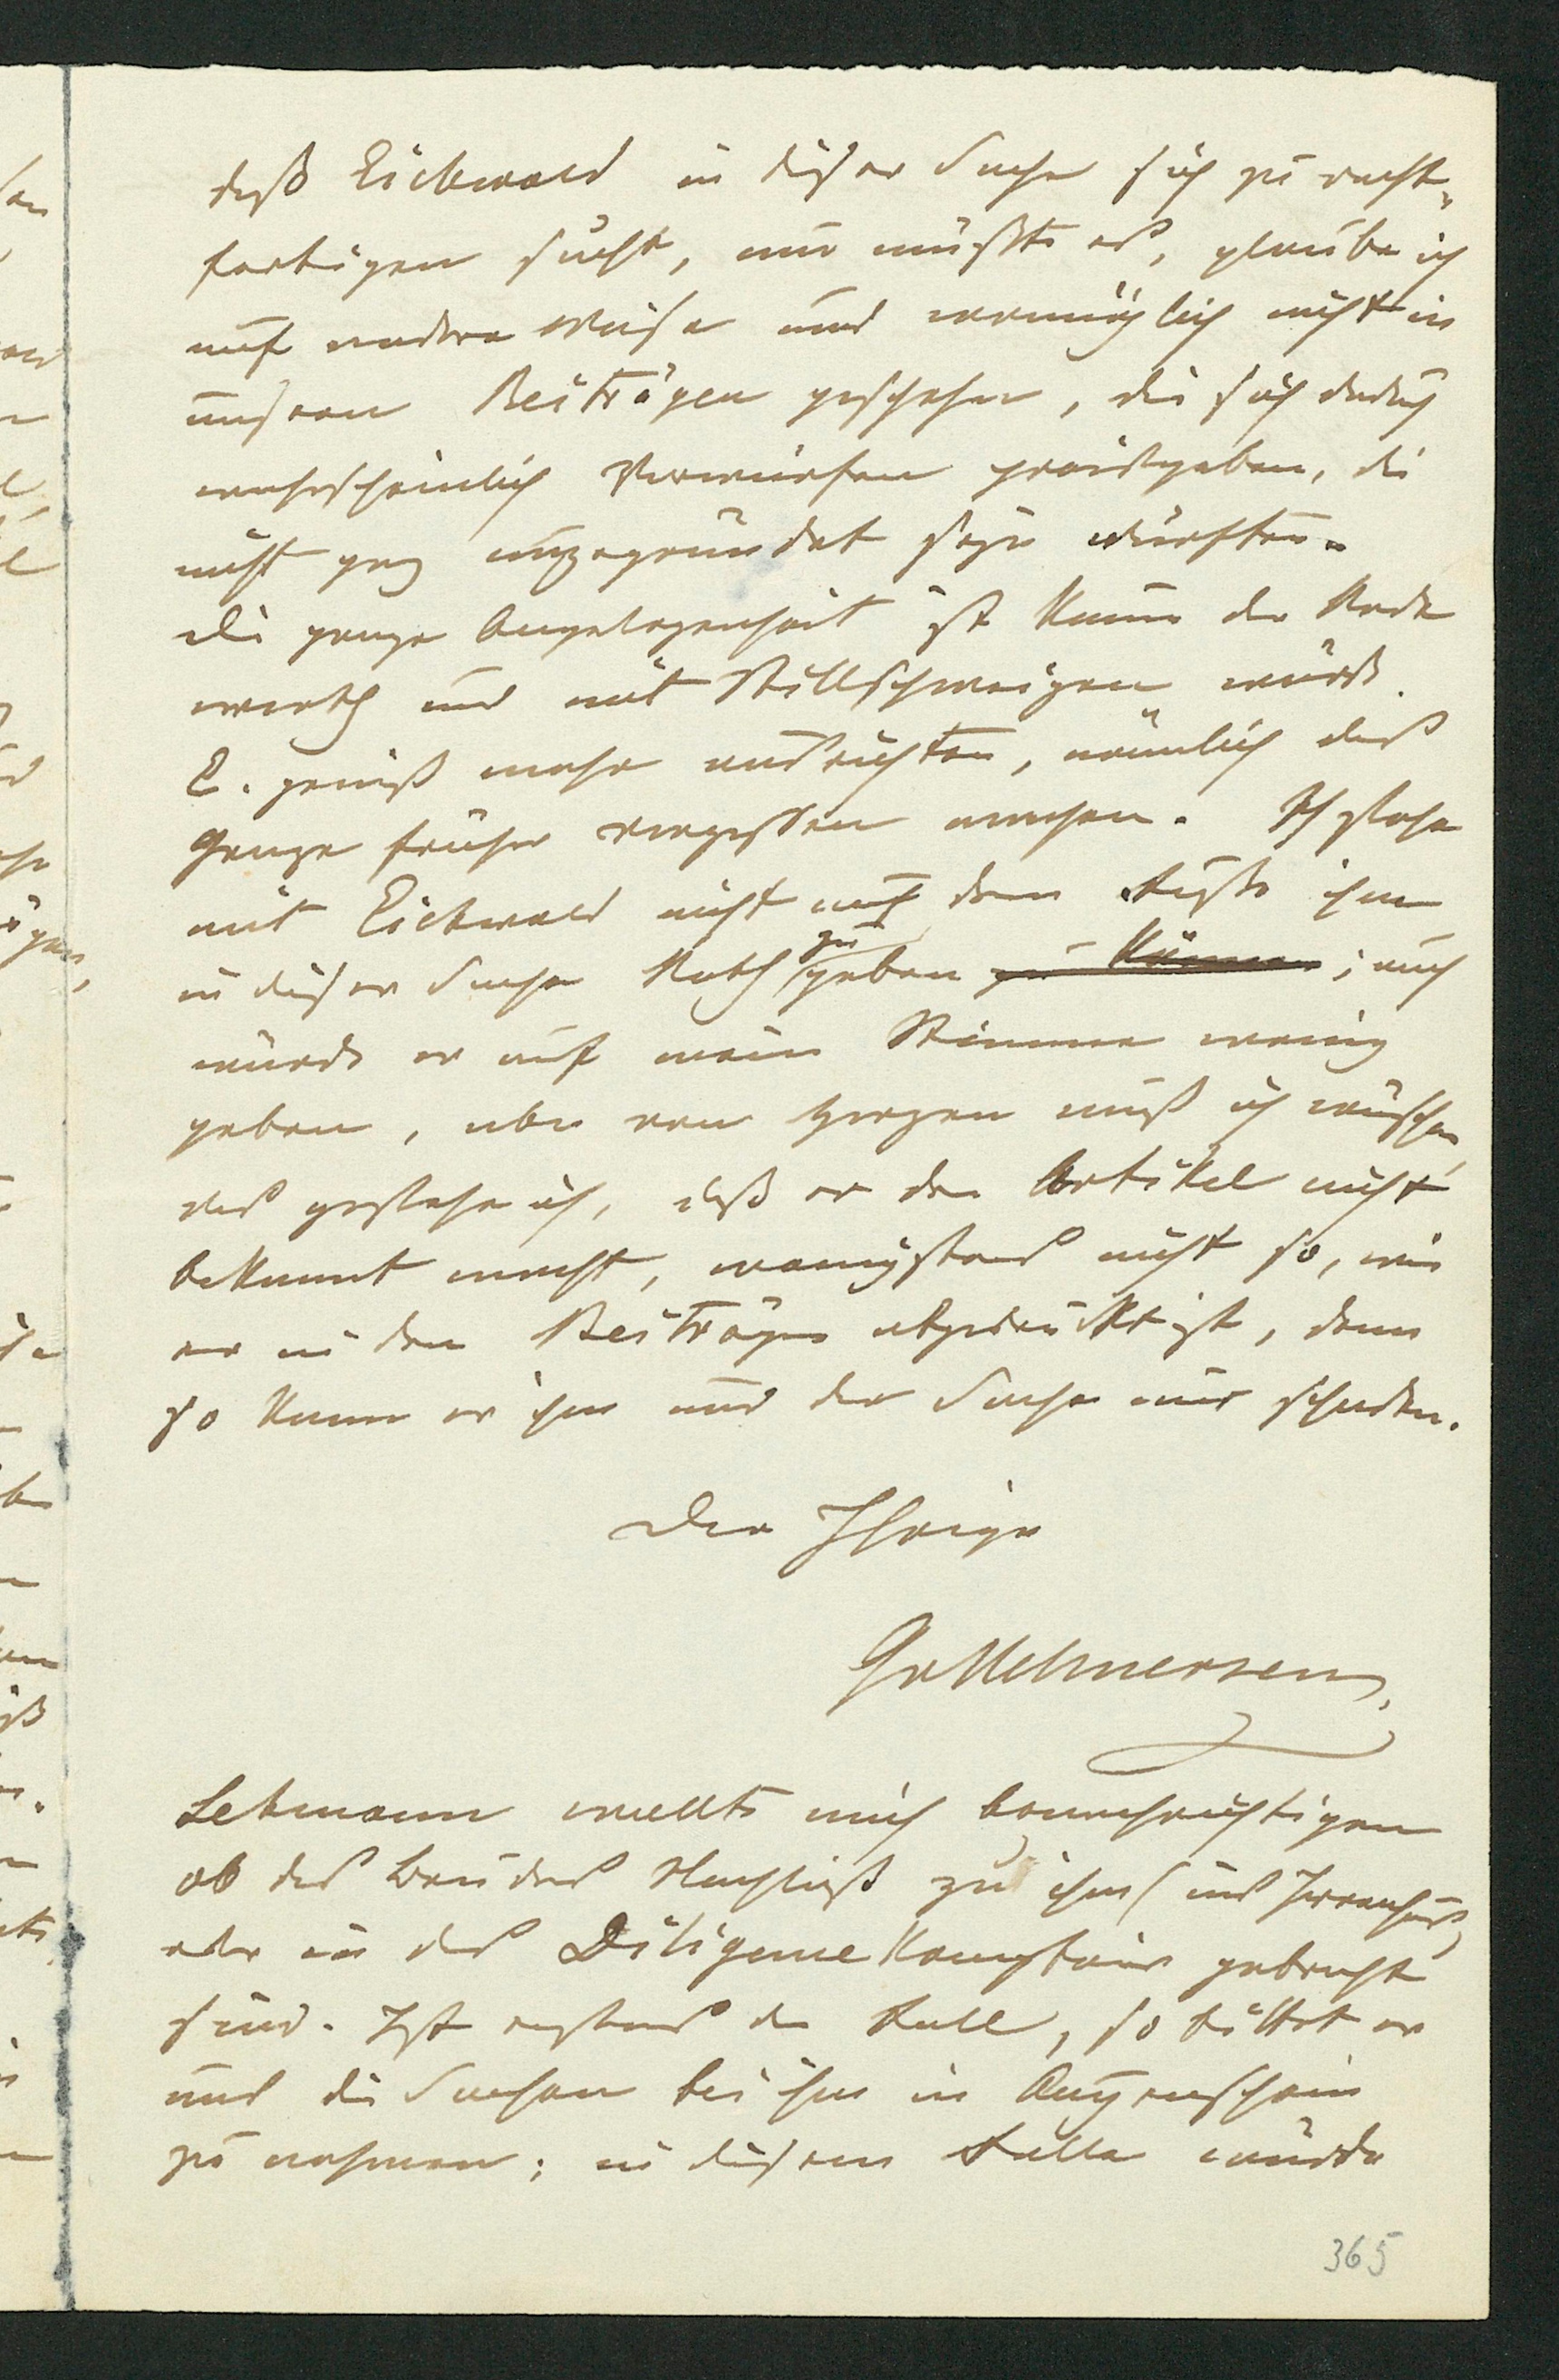 daß Eichwald in dieser Sache sich zu recht-
fertigen sucht, nur müßte es, glaube ich
auf andere Weise und womöglich nicht in
unseren Beiträgen geschehen, die sich dadurch
wahrscheinlich Vorwürfen preisgeben, die
nicht ganz ungegründet seyn dürften.
Die ganze Angelegenheit ist kaum der Rede
werth und mit Stillschweigen würde
E. gewiß mehr ausrichten, nämlich das
Ganze früher vergessen machen. Ich stehe
mit Eichwald nicht auf dem Fuße ihm
in dieser Sache Rath zu geben zu können; auch
würde er auf meine Stimme wenig
geben, aber von Herzen muß ich wünschen,
das gestehe ich, daß er den Artikel nicht
bekannt macht, wenigstens nicht so, wie
er in den Beiträgen abgedruckt ist, denn
so kann er ihm und der Sache nur schaden.
Der Ihrige
GvHelmersen
Lehmann wollte mich benachrichtigen
ob des Bruders Nachlaß zu ihm (ins Irrenhaus)
oder in das Diligence Komptoir gebracht
sind. Ist erstens der Fall, so bittet er
uns die Sachen bei ihm in Augenschein
zu nehmen; in diesem Falle würde
365